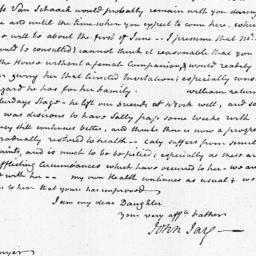 s Van Schaack would probably remain with you during
e and until the time when you expect to come here, which
will be about the first of June — I presume that Mr.
would be consulted; I cannot think it reasonable that you
the House without a female companion,
her that limited Invitation; especially cons
gard he has for her family. William return
turdays Stage — he left our friends at N York well, and so
was desirous to have Sally pass some weeks with
still continues better, and thinks there is now a prospe
gradually restored to health — suffers from
aints, and is much to be pitied; especially as there are
afflicting Circumstances which have occurred to her. we are
t with her — my own Health continues as usual & wo
s to hear that yours has improved
I am my dear Daughter
Your very affte. Father
John Jay —